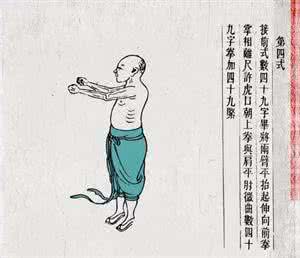 第四式
接前式數四十九字畢將兩臂平抬起伸向前拳
掌相離尺許虎口朝上拳與肩平肘微曲數四十
九字拳加四十九緊